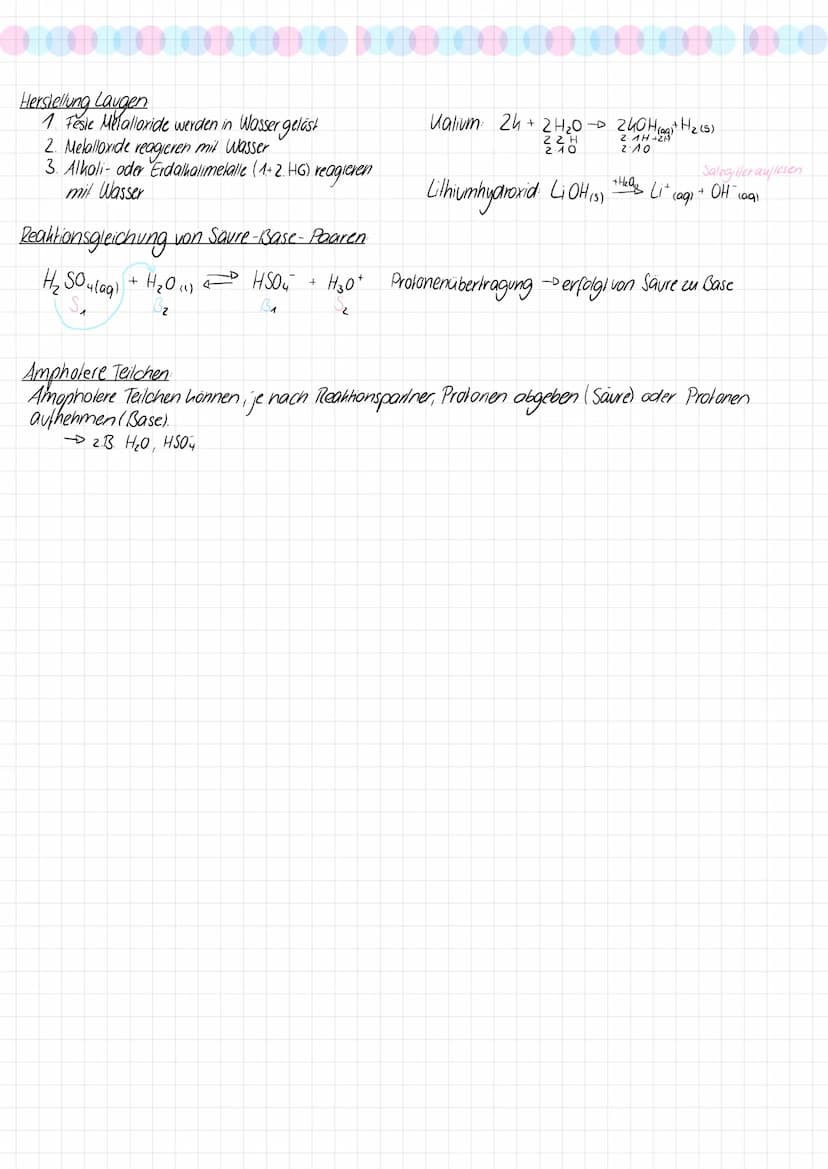 Herstellung Laugen
1. Feste Metalloxide werden in Wasser gelöst
2. Metalloxide reagieren mit Wasser
3. Alkali- oder Erdalkalimetalle (1+2. HG) reagieren
mit Wasser
Kalium: 2K + 2H₂O → 2KOH(aq) + H₂(s)
2·2 H 2·1H+2H
2·1 O 2·1O
Salzgitter auflösen
Lithiumhydroxid: LiOH(s) +H₂O→ Li⁺(aq) + OH⁻(aq)
Reaktionsgleichung von Säure-Base-Paaren
H₂SO₄(aq) + H₂O(l) ⇌ HSO₄⁻ + H₃O⁺ Protonenübertragung → erfolgt von Säure zu Base
S₁ B₂ B₁ S₂
Ampholere Teilchen:
Ampholere Teilchen können, je nach Reaktionspartner, Protonen abgeben (Säure) oder Protonen
aufnehmen (Base).
→ z.B. H₂O, HSO₄⁻